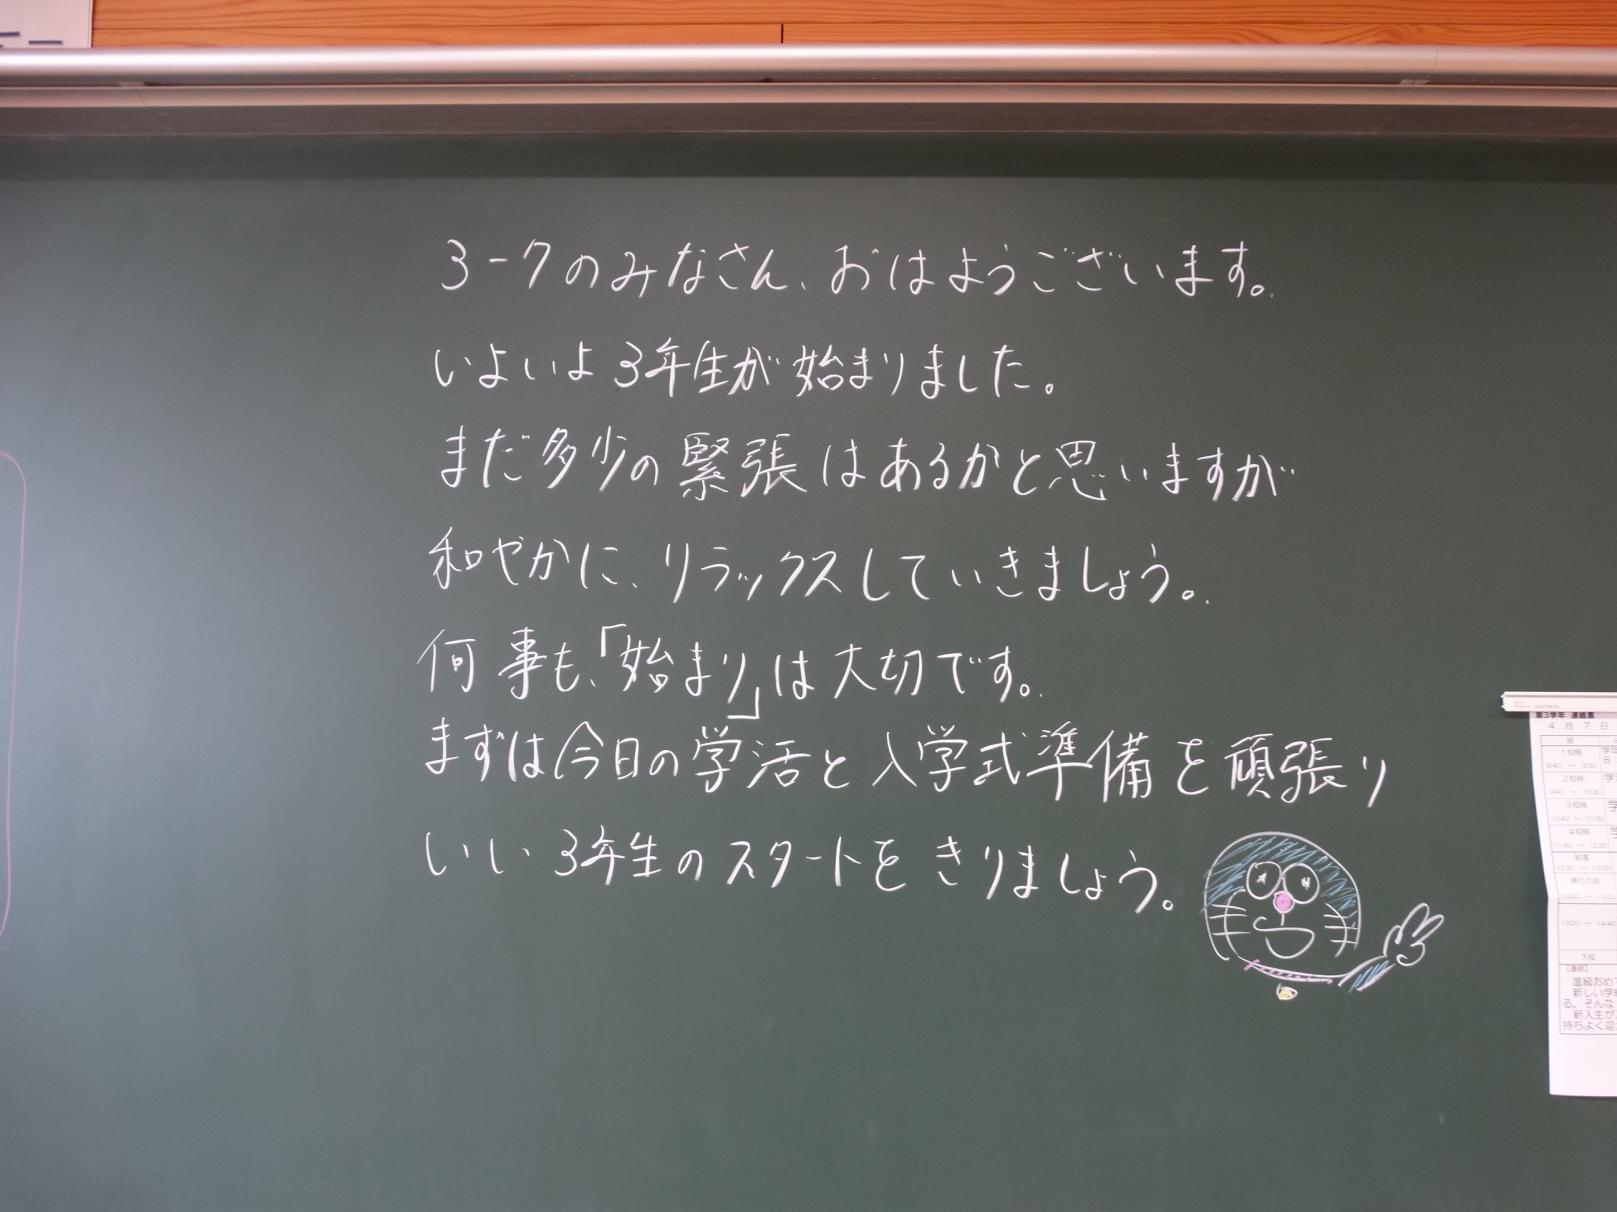 3-7のみなさん、おはようございます。
いよいよ3年生が始まりました。
まだ多少の緊張はあるかと思いますが
和やかに、リラックスしていきましょう。
何事も、「始まり」は大切です。
まずは今日の学活と入学式準備を頑張り
いい3年生のスタートをきりましょう。
第3学年 連絡票
4月7日
1校時
2校時
3校時
10:40 ～ 11:30
4校時
11:40 ～ 12:30
給食
帰りの会
13:20 ～ 14:40
下校
【連絡】
進級おめ
新しい学
る、そんな
新入生が
持ちよく迎